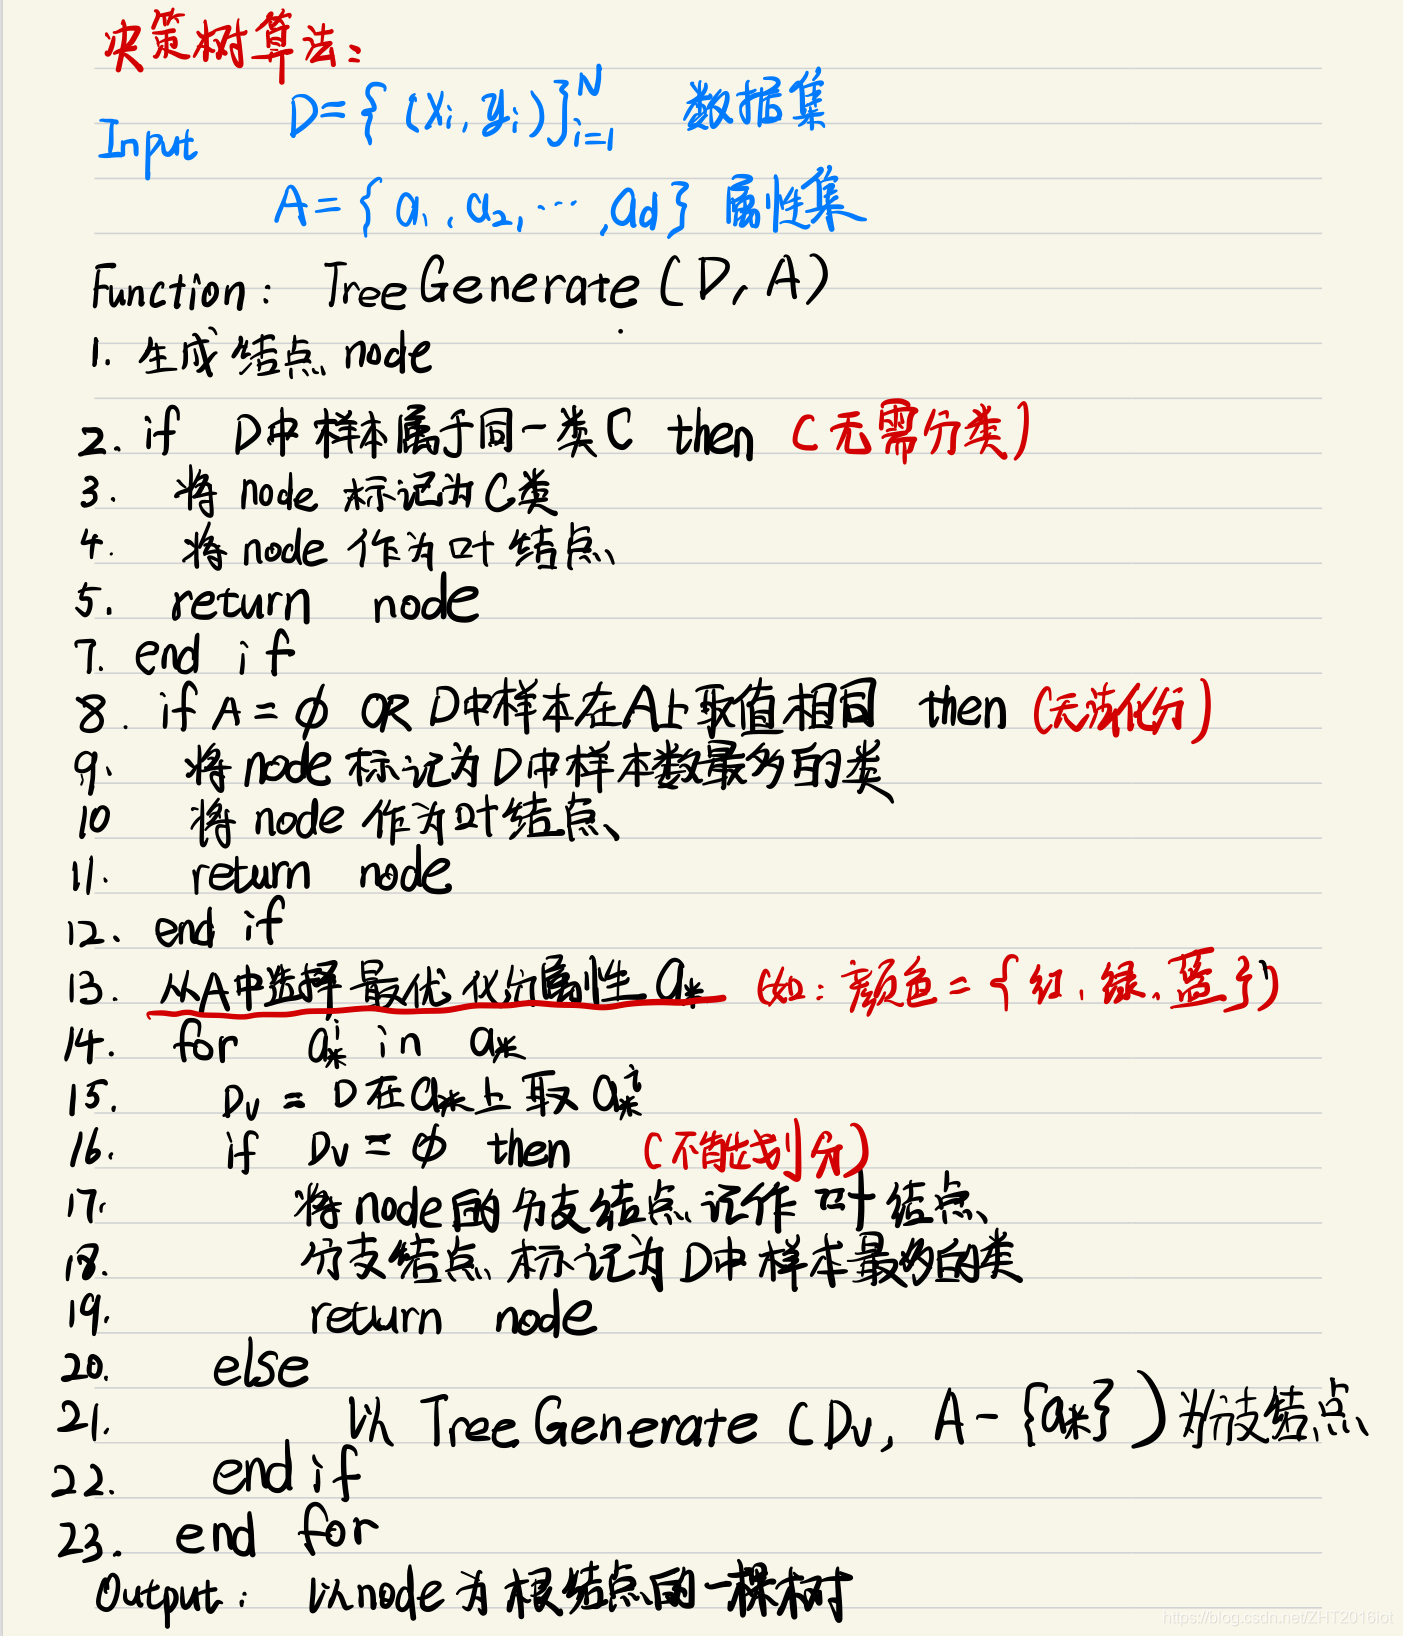 决策树算法:
D={(xi,yi)}_{i=1}^{N} 数据集
Input
A={a1,a2,…,ad} 属性集
Function: TreeGenerate(D,A)
1. 生成结点 node
2. if D中样本属于同一类C then (无需分类)
3. 将node 标记为C类
4. 将node 作为叶结点
5. return node
7. end if
8. if A=ϕ OR D中样本在A上取值相同 then (无法化分)
9. 将node标记为D中样本数最多的类
10 将node作为叶结点
11. return node
12. end if
13. 从A中选择最优化分属性 a* (如:颜色={红、绿、蓝})
14. for a*^i in a*
15. Dv = D在a*上取a*^i
16. if Dv=ϕ then (不能划分)
17. 将node的分支结点记作叶结点
18. 分支结点标记为D中样本最多的类
19. return node
20. else
21. 以 TreeGenerate(Dv, A-{a*})为分支结点
22. end if
23. end for
Output: 以node为根结点的一棵树
https://blog.csdn.net/ZHT2016iot